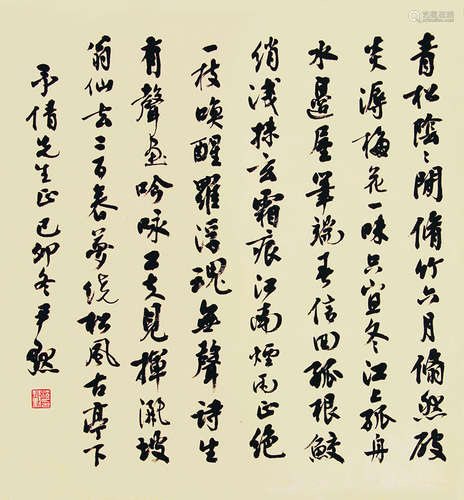 青松陰〻閒脩竹六月翛然破
炎溽梅花一味只宜冬江上孤舟
水邊屋筆端春信回孤根鮫
綃淺抹玄霜痕江南煙雨正絕
一枝喚醒羅浮魂無聲詩生
有聲畫吟詠工夫見揮灑坡
翁仙去二百夢繞松風古亭下
予倩先生正己卯冬尹默